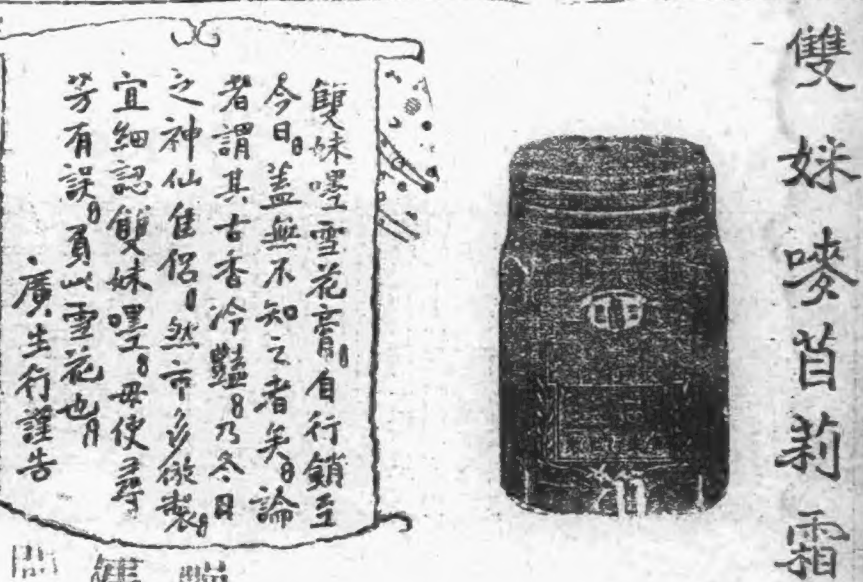 雙妹嘜苜莉霜
雙妹嚜雪花膏。自行銷至
今日。蓋無不知之者矣。論
者謂其古香冷豔。乃冬日
之神仙佳侶。然市多倣製。
宜細認雙妹嚜。毋使尋
芳有誤。負此雪花也。
廣生行謹告